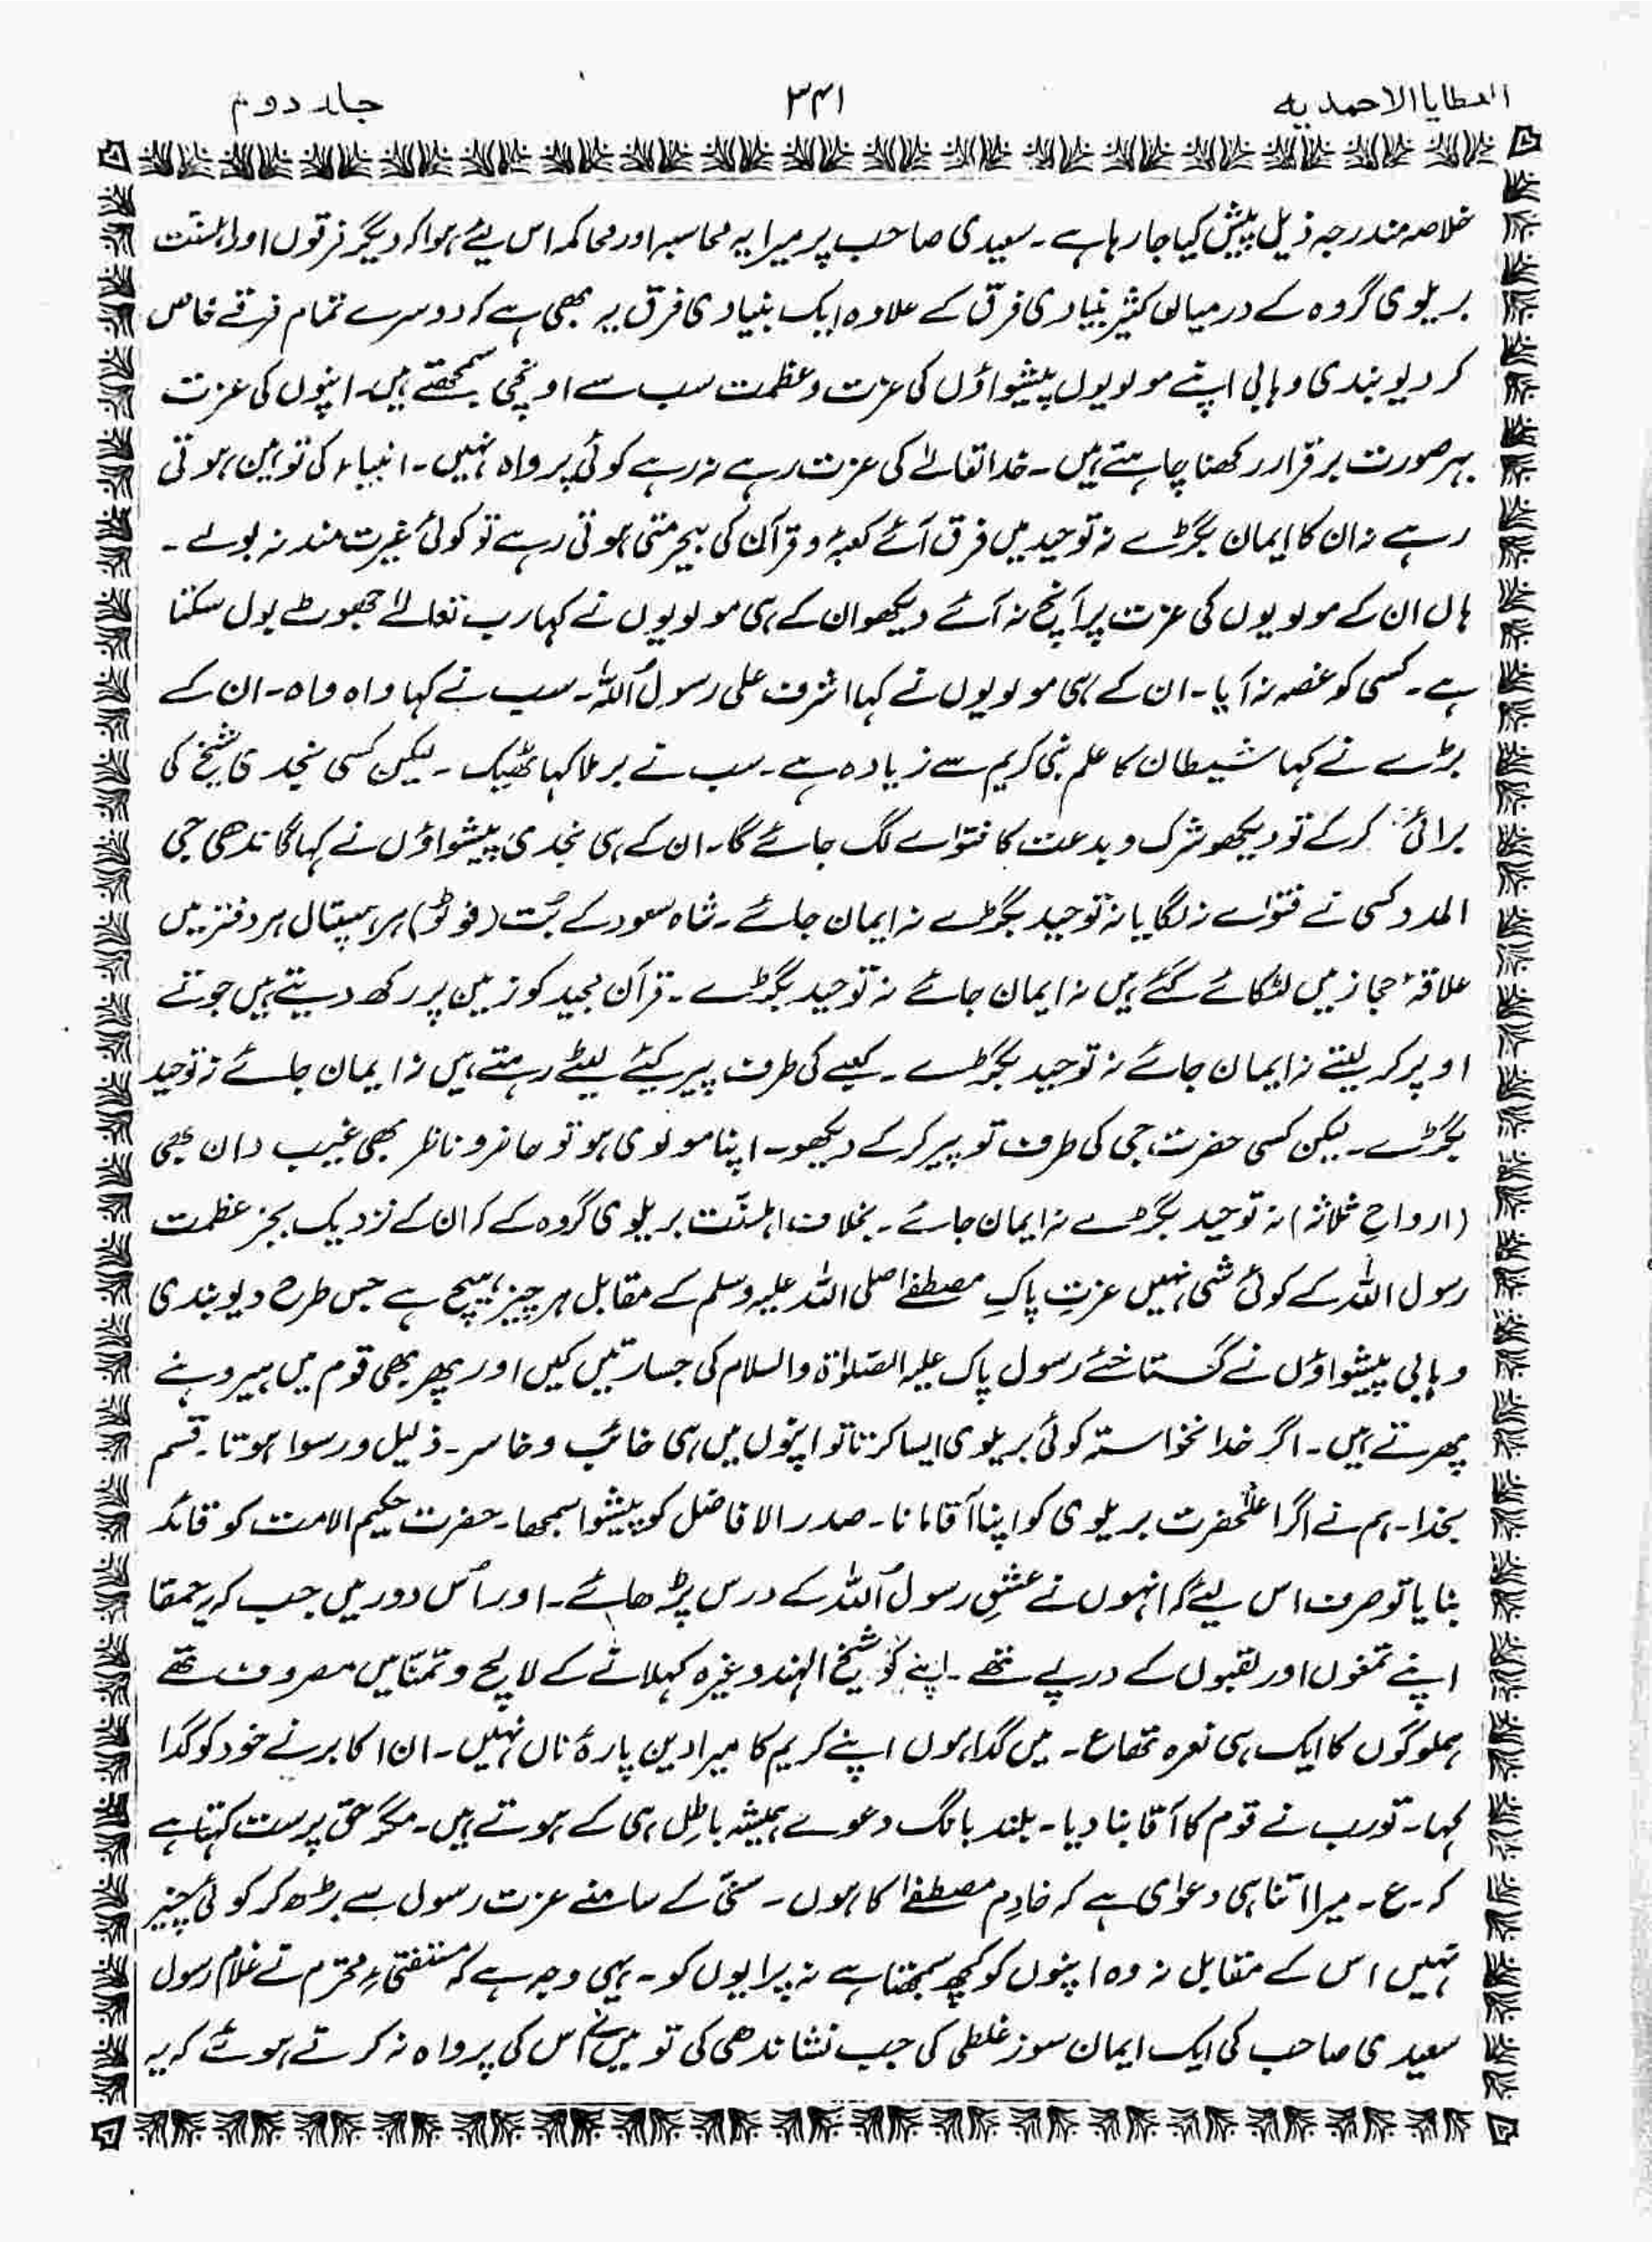 العطایا الاحمدیہ ۳۴۱ جلد دوم
خلاصہ مندرجہ ذیل پیش کیا جا رہا ہے۔ سعیدی صاحب پر میرا یہ محاسبہ اور محاکمہ اس لیۓ ہوا کہ دیگر فرقوں اور اہلسنّت
بریلوی گروہ کے درمیان کثیر بنیادی فرق کے علاوہ ایک بنیادی فرق یہ بھی ہے کہ دوسرے تمام فرقے خاص
کر دیوبندی وہابی اپنے مولویوں پیشواؤں کی عزت و عظمت سب سے اونچی سمجھتے ہیں۔ اپنوں کی عزت
بہر صورت برقرار رکھنا چاہتے ہیں۔ خدا تعالےٰ کی عزت رہے نہ رہے کوئی پرواہ نہیں۔ انبیاء کی توہین ہوتی
رہے نہ ان کا ایمان بگڑے نہ توحید میں فرق آئے کعبہ و قرآن کی بیحرمتی ہوتی رہے تو کوئی غیرت مند نہ بولے۔
ہاں ان کے مولویوں کی عزت پر آنچ نہ آئے دیکھو ان کے ہی مولویوں نے کہا رب تعالےٰ جھوٹ بول سکتا
ہے۔ کسی کو غصہ نہ آیا۔ ان کے ہی مولویوں نے کہا اشرف علی رسول اللہ۔ سب نے کہا واہ واہ۔ ان کے
بڑے نے کہا شیطان کا علم نبی کریم سے زیادہ ہے۔ سب نے برملا کہا ٹھیک۔ لیکن کسی نجدی شیخ کی
برائی کر کے تو دیکھو شرک و بدعت کا فتوٰے لگ جائے گا۔ ان کے ہی نجدی پیشواؤں نے کہا گاندھی جی
المدد کسی نے فتوٰے نہ لگایا نہ توحید بگڑے نہ ایمان جائے۔ شاہ سعود کے بُت (فوٹو) ہر ہسپتال ہر دفتر میں
علاقۂ حجاز میں لٹکائے گئے ہیں نہ ایمان جائے نہ توحید بگڑے۔ قرآن مجید کو زمین پر رکھ دیتے ہیں جوتے
اوپر کر لیتے نہ ایمان جائے نہ توحید بگڑے۔ کعبے کی طرف پیر کیئے لیٹے رہتے ہیں نہ ایمان جائے نہ توحید
بگڑے۔ لیکن کسی حضرت جی کی طرف تو پیر کر کے دیکھو۔ اپنا مولوی ہو تو حاضر و ناظر بھی غیب دان بھی
(ارواحِ ثلاثہ) نہ توحید بگڑے نہ ایمان جائے۔ بخلاف اہلسنّت بریلوی گروہ کے کہ ان کے نزدیک بجز عظمت
رسول اللہ کے کوئی شی نہیں عزتِ پاکِ مصطفےٰ صلی اللہ علیہ وسلم کے مقابل ہر چیز ہیچ ہے جس طرح دیوبندی
وہابی پیشواؤں نے گستاخئے رسول پاک علیہ الصّلوٰۃ والسلام کی جسارتیں کیں اور پھر بھی قوم میں ہیرو بنے
پھرتے ہیں۔ اگر خدانخواستہ کوئی بریلوی ایسا کرتا تو اپنوں میں ہی خائب و خاسر۔ ذلیل و رسوا ہوتا۔ قسم
بخدا۔ ہم نے اگر اعلٰحضرت بریلوی کو اپنا آقا مانا۔ صدر الافاضل کو پیشوا سمجھا۔ حضرت حکیم الامت کو قائد
بنایا تو صرف اس لیئے کہ انہوں نے عشقِ رسول اللہ کے درس پڑھائے۔ اور اُس دور میں جب کہ یہ حمقا
اپنے تمغوں اور لقبوں کے درپے تھے۔ اپنے کو شیخ الہند وغیرہ کہلانے کے لالچ و تمنّا میں مصروف تھے
ہملوگوں کا ایک ہی نعرہ تھا ع۔ میں گدا ہوں اپنے کریم کا میرا دین پارۂ ناں نہیں۔ ان اکابر نے خود کو گدا
کہا۔ تو رب نے قوم کا آقا بنا دیا۔ بلند بانگ دعوے ہمیشہ باطل ہی کے ہوتے ہیں۔ مگر حق پرست کہتا ہے
کہ۔ ع۔ میرا اتنا ہی دعوٰی ہے کہ خادِم مصطفےٰ کا ہوں۔ سنّی کے سامنے عزت رسول سے بڑھ کر کوئی چیز
نہیں اس کے مقابل نہ وہ اپنوں کو کچھ سمجھتا ہے نہ پرایوں کو۔ یہی وجہ ہے کہ مستفتیء محترم نے غلام رسول
سعیدی صاحب کی ایک ایمان سوز غلطی کی جب نشاندھی کی تو میں نے اُس کی پرواہ نہ کرتے ہوئے کہ یہ